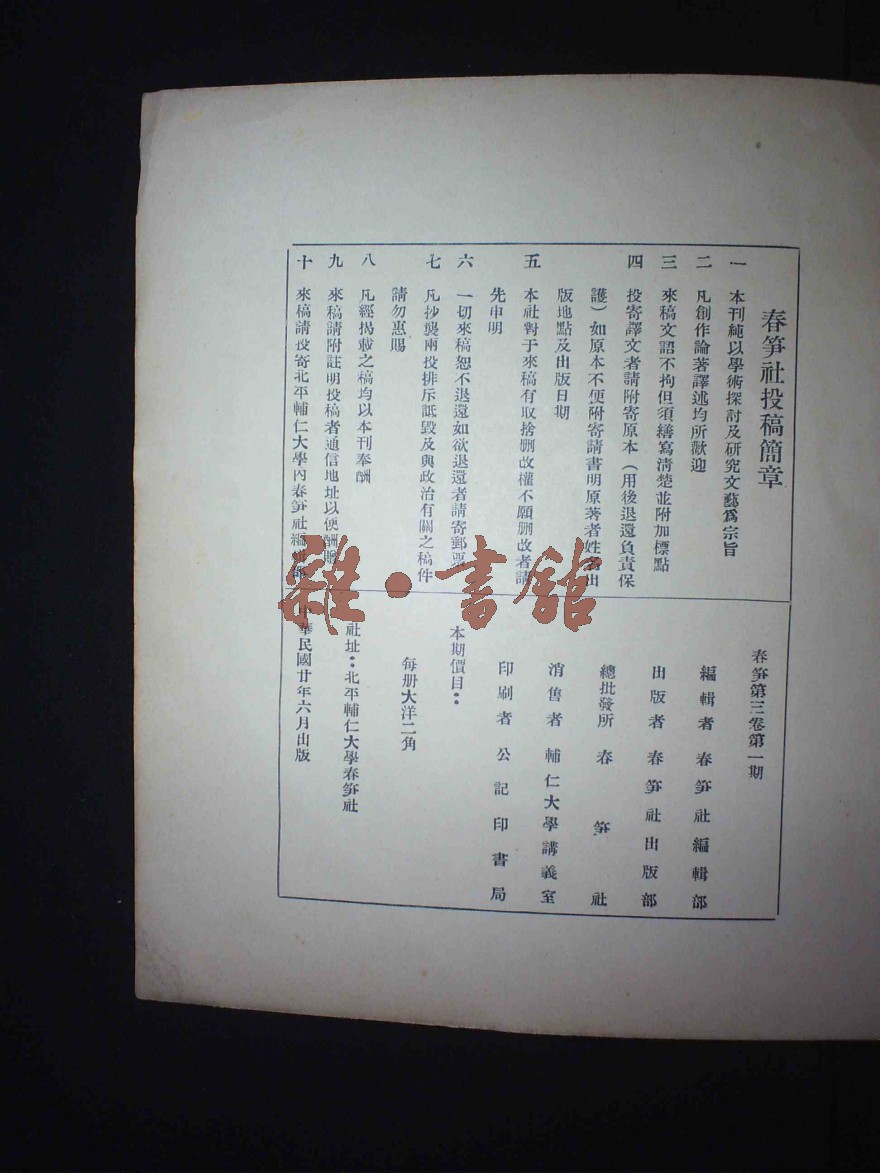 春笋社投稿簡章
一　本刊純以學術探討及研究文藝爲宗旨
二　凡創作論著譯述均所歡迎
三　來稿文語不拘但須繕寫淸楚並附加標點
四　投寄譯文者請附寄原本（用後退還負責保
護）如原本不便附寄請書明原著者姓名出
版地點及出版日期
五　本社對于來稿有取捨删改權不願删改者請
先申明
六　一切來稿恕不退還如欲退還者請寄郵票
七　凡抄襲兩投排斥詆毀及與政治有關之稿件
請勿惠賜
八　凡經揭載之稿均以本刊奉酬
九　來稿請附註明投稿者通信地址以便酬贈
十　來稿請投寄北平輔仁大學內春笋社編輯部
春笋第三卷第一期
編輯者　春笋社編輯部
出版者　春笋社出版部
總批發所　春笋社
消售者　輔仁大學講義室
印刷者　公記印書局
本期價目：
每册大洋二角
社址：北平輔仁大學春笋社
中華民國廿年六月出版
雜·書館